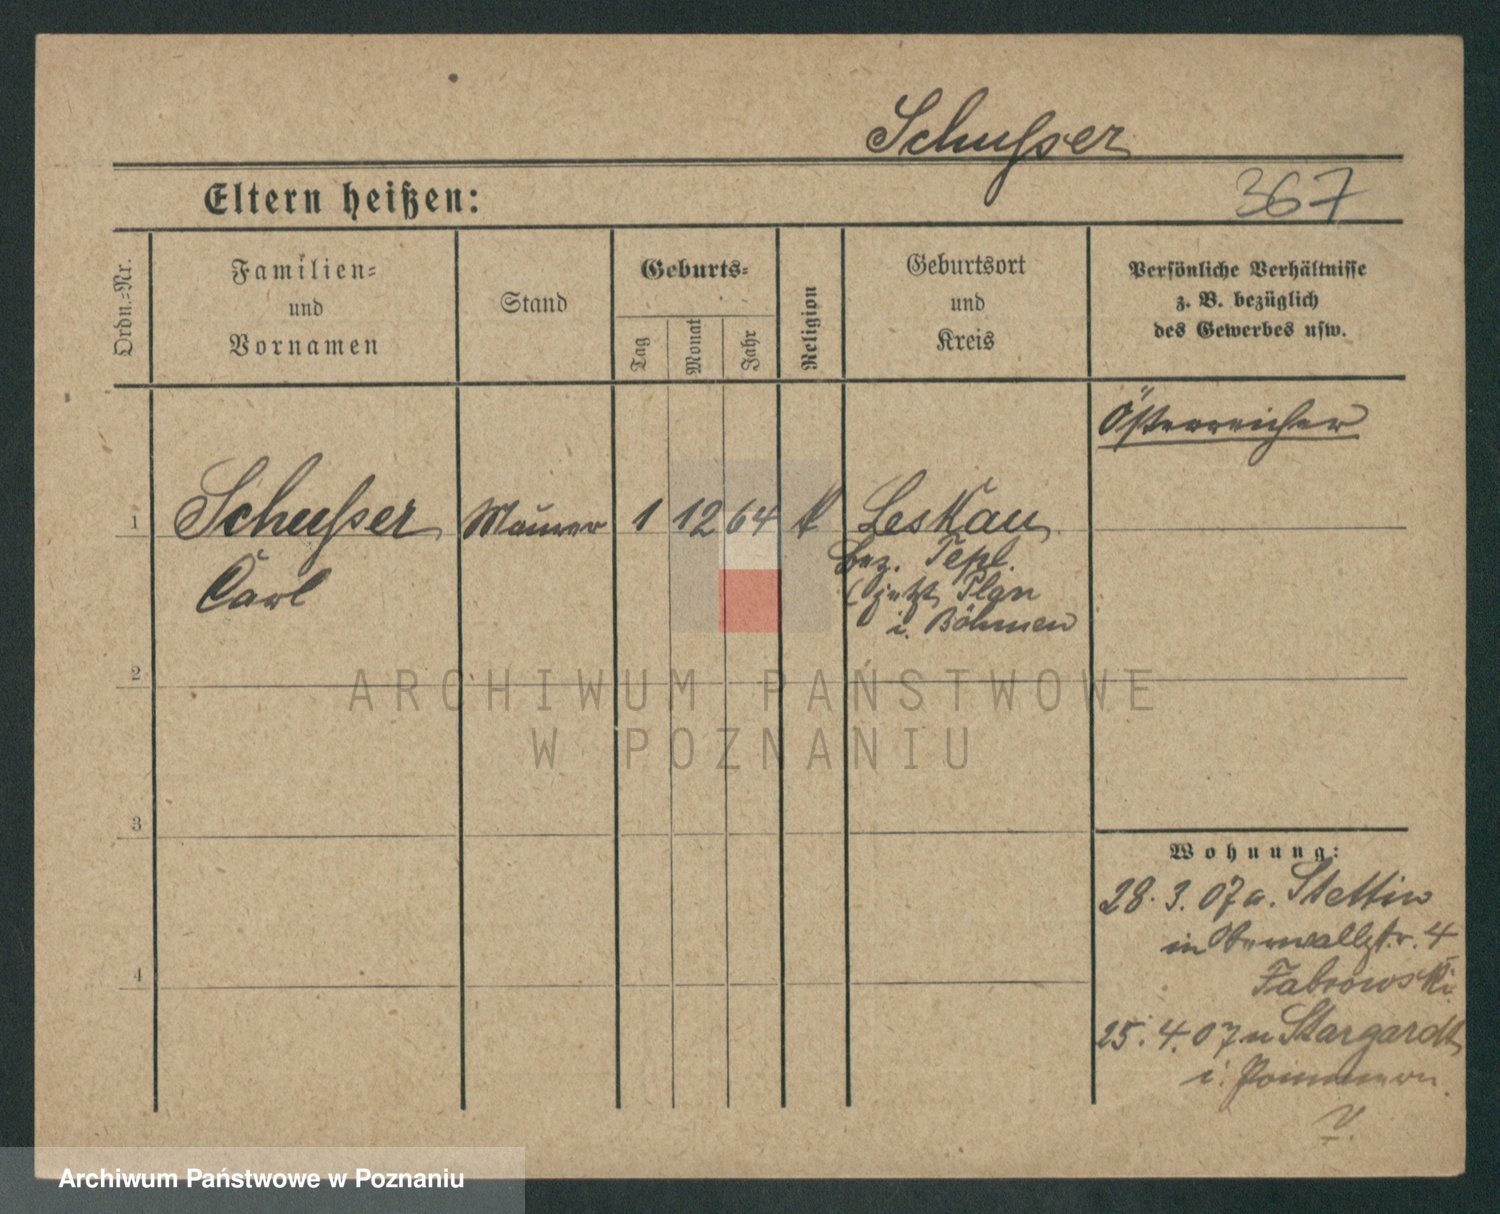 Schusser
Eltern heißen:
367
Ordn.-Nr.
Familien-
und
Vornamen
Stand
Geburts-
Tag
Monat
Jahr
Religion
Geburtsort
und
Kreis
Persönliche Verhältnisse
z. B. bezüglich
des Gewerbes usw.
Österreicher
1 Schusser Maurer 1 12 64 k Leskau
Carl
Bez. Tepl.
(jetzt Plan
i. Böhmen
2
3
4
Wohnung:
28. 3. 07 a. Stettin
in Oberwallstr. 4
Fabrowski
25. 4. 07 n Stargardt
i. Pommern
V.
ARCHIWUM PAŃSTWOWE
W POZNANIU
Archiwum Państwowe w Poznaniu